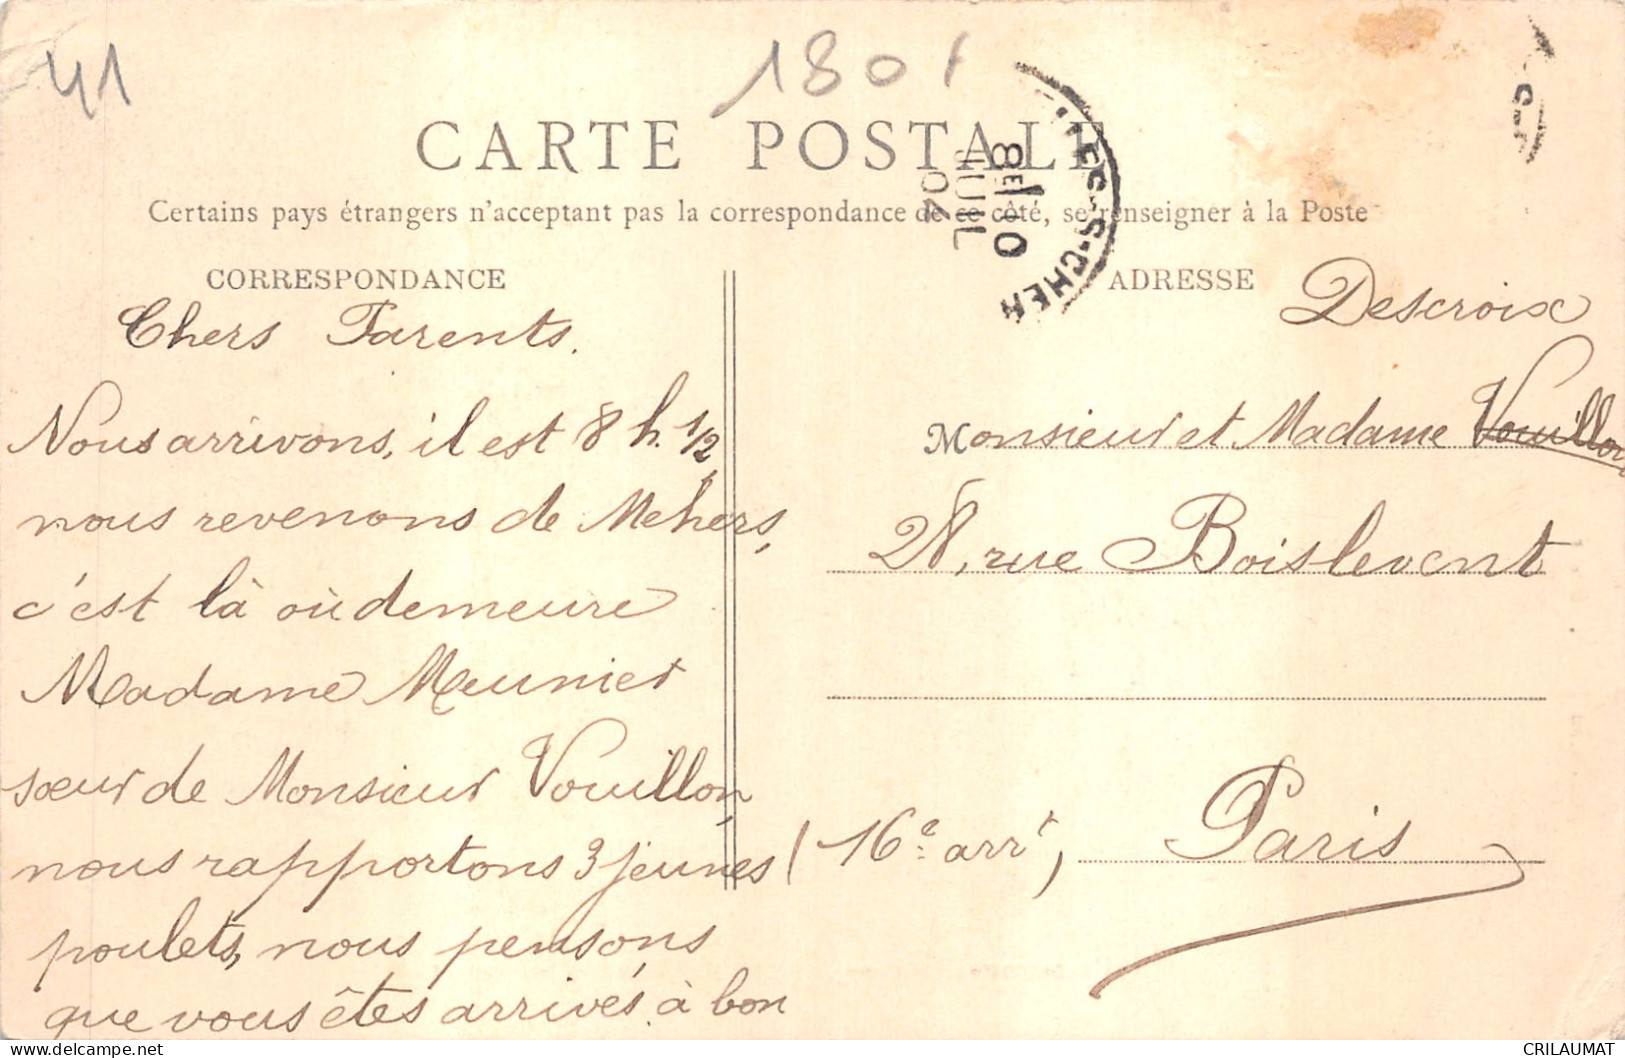 41
1801
CARTE POSTALE
8E 10
JUIL
04
S-CHER
Certains pays étrangers n'acceptent pas la correspondance de ce côté, se renseigner à la Poste
CORRESPONDANCE
Chers Parents.
Nous arrivons, il est 8 h. 1/2,
nous revenons de Mehers,
c'est là où demeure
Madame Meunier
sœur de Monsieur Vouillon,
nous rapportons 3 jeunes
poulets, nous pensons
que vous êtes arrivés à bon
ADRESSE
Descroix
Monsieur et Madame Vouillon
28, rue Boislevent
(16e arrt) Paris
CRILAUMAT